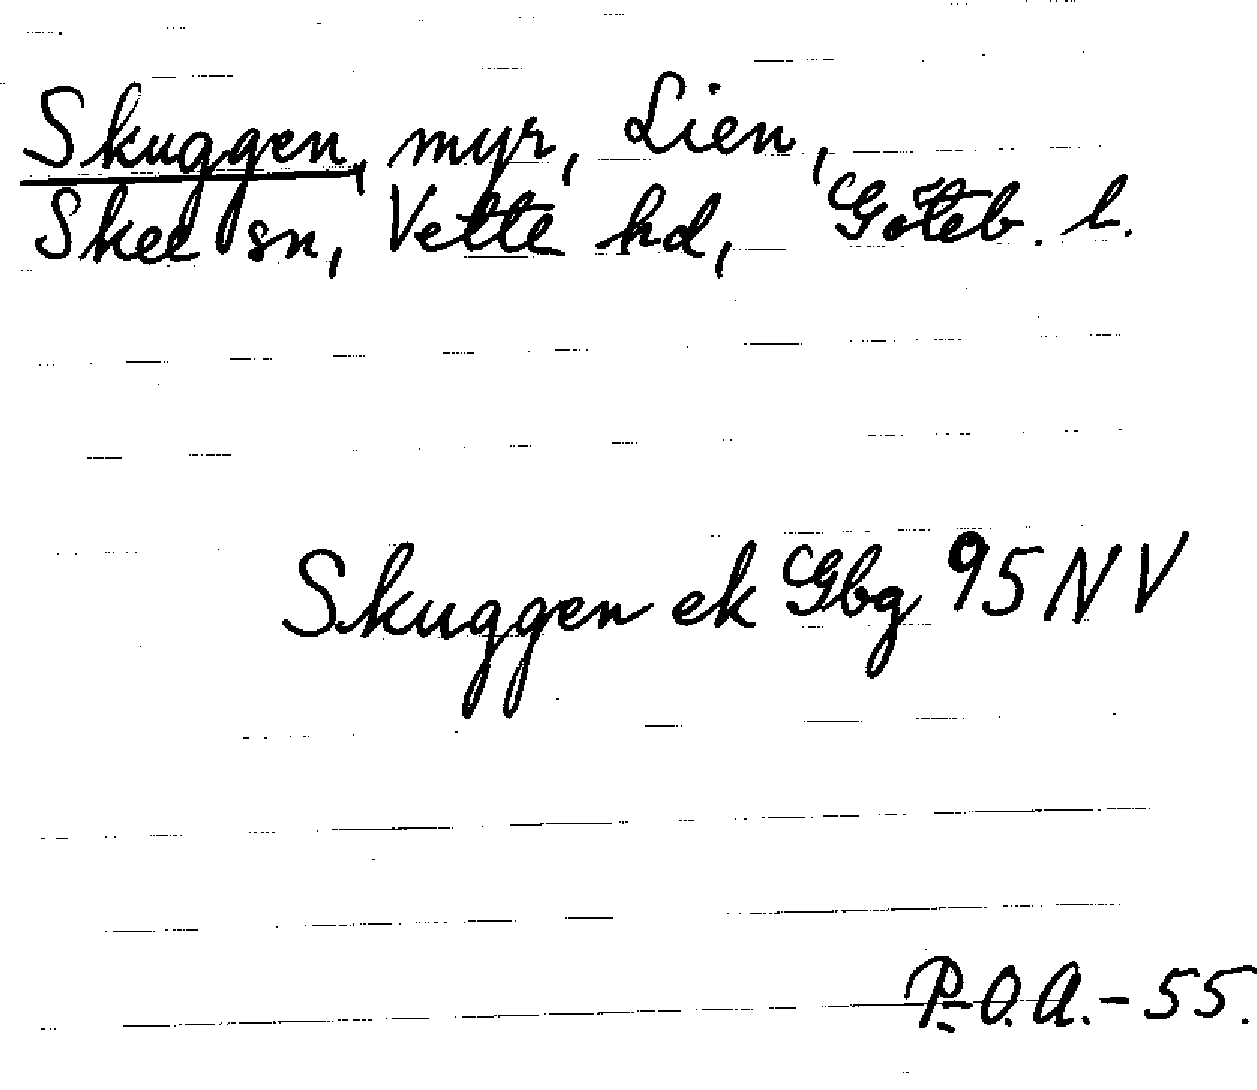 Skuggen, myr, Lien,
Skee sn, Vette hd, Göteb. l.
Skuggen ek Gbg 95 NV
P.-O.A.-55.